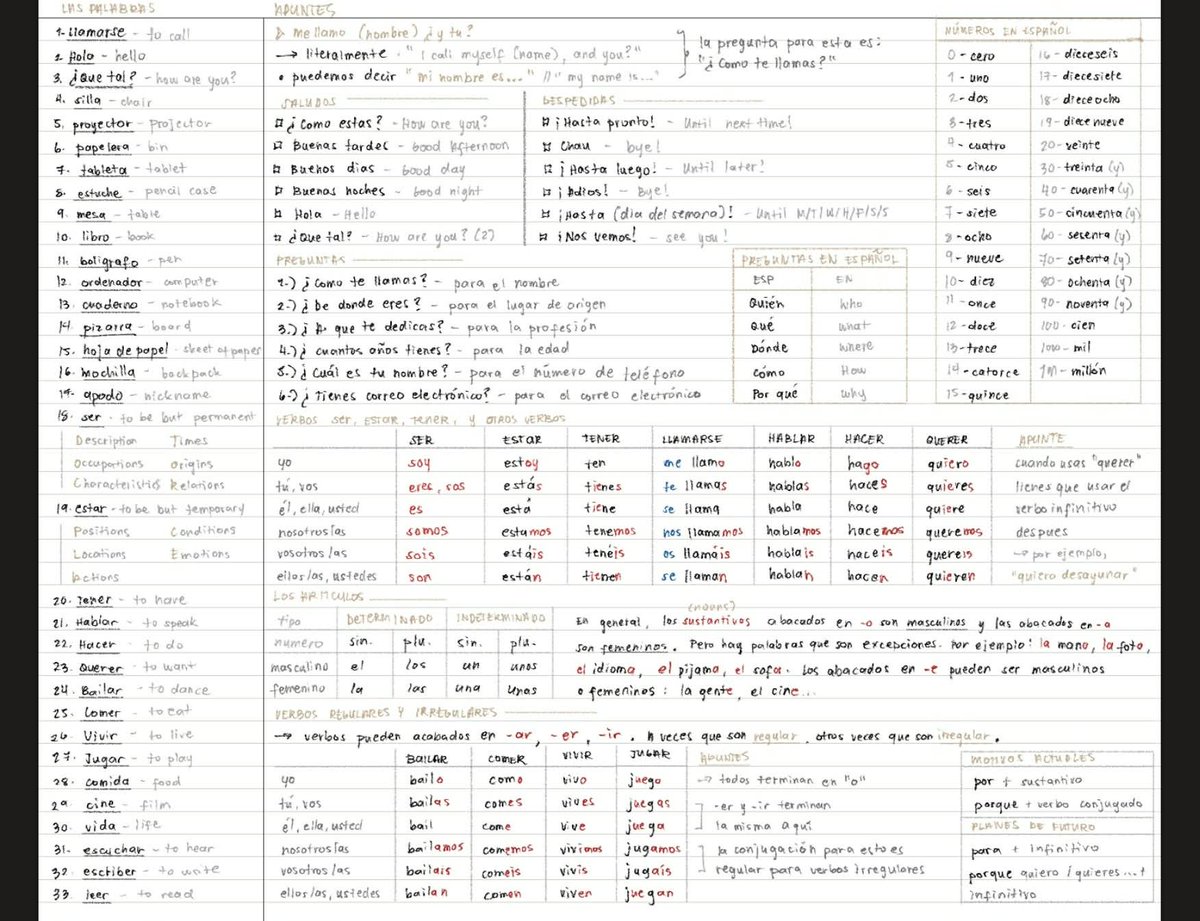 LAS PALABRAS
1. Llamarse - to call
2. Hola - hello
3. ¿Que tal? - how are you?
4. silla - chair
5. proyector - projector
6. papelera - bin
7. tableta - tablet
8. estuche - pencil case
9. mesa - table
10. libro - book
11. boligrafo - pen
12. ordenador - computer
13. cuaderno - notebook
14. pizarra - board
15. hoja de papel - sheet of paper
16. mochilla - backpack
17. apodo - nickname
18. ser - to be but permanent
Description Times
Occupations Origins
Characteristics Relations
19. estar - to be but temporary
Positions Conditions
Locations Emotions
Actions
20. Tener - to have
21. Hablar - to speak
22. Hacer - to do
23. Querer - to want
24. Bailar - to dance
25. Comer - to eat
26. Vivir - to live
27. Jugar - to play
28. comida - food
29. cine - film
30. vida - life
31. escuchar - to hear
32. escriber - to write
33. leer - to read
APUNTES
me llamo (nombre) ¿y tu?
→ literalmente - "I call myself (name), and you?"
• puedemos decir "mi nombre es..." // "my name is..."
la pregunta para esta es:
"¿Como te llamas?"
SALUDOS
¿Como estas? - How are you?
Buenas tardes - Good Afternoon
Buenos dias - Good day
Buenas noches - Good night
Hola - Hello
¿Que tal? - How are you? (2)
DESPEDIDAS
¡Hasta pronto! - Until next time!
Chau - bye!
¡Hasta luego! - Until later!
¡Adios! - Bye!
¡Hasta (dia del semana)! - Until M/T/W/H/F/S/S
¡Nos vemos! - see you!
NÚMEROS EN ESPAÑOL
0 - cero 16 - dieceseis
1 - uno 17 - diecesiete
2 - dos 18 - dieceocho
3 - tres 19 - diecenueve
4 - cuatro 20 - veinte
5 - cinco 30 - treinta (y)
6 - seis 40 - cuarenta (y)
7 - siete 50 - cincuenta (y)
8 - ocho 60 - sesenta (y)
9 - nueve 70 - setenta (y)
10 - diez 80 - ochenta (y)
11 - once 90 - noventa (y)
12 - doce 100 - cien
13 - trece 1000 - mil
14 - catorce 1M - millón
15 - quince
PREGUNTAS
1.) ¿Como te llamas? - para el nombre
2.) ¿De donde eres? - para el lugar de origen
3.) ¿A que te dedicas? - para la profesión
4.) ¿cuantos años tienes? - para la edad
5.) ¿Cuál es tu nombre? - para el número de teléfono
6.) ¿Tienes correo electrónico? - para el correo electrónico
PREGUNTAS EN ESPAÑOL
ESP EN
Quién who
Qué what
Dónde where
cómo How
Por qué why
VERBOS ser, ESTAR, TENER, Y OTROS VERBOS
SER ESTAR TENER LLAMARSE HABLAR HACER QUERER APUNTE
yo soy estoy ten me llamo hablo hago quiero cuando usas "querer"
tú, vos eres, sos estás tienes te llamas hablas haces quieres tienes que usar el
él, ella, usted es está tiene se llama habla hace quiere verbo infinitivo
nosotros/as somos estamos tenemos nos llamamos hablamos hacemos queremos despues
vosotros/as sois estáis tenéis os llamáis hablais haceis quereis → por ejemplo,
ellos/as, ustedes son están tienen se llaman hablan hacen quieren "quiero desayunar"
LOS ARTICULOS
tipo DETERMINADO INDETERMINADO
numero sin. plu. sin. plu.
masculino el los un unos
femenino la las una unas
(nouns)
En general, los sustantivos abacados en -o son masculinos y las abacados en -a
son femeninos. Pero hay palabras que son excepciones. Por ejemplo: la mano, la foto,
el idioma, el pijama, el sofa. Los abacados en -e pueden ser masculinos
o femeninos: la gente, el cine...
VERBOS REGULARES Y IRREGULARES
→ verbos pueden acabados en -ar, -er, -ir. A veces que son regular, otros veces que son irregular.
BAILAR COMER VIVIR JUGAR
yo bailo como vivo juego
tú, vos bailas comes vives juegas
él, ella, usted bail come vive juega
nosotros/as bailamos comemos vivimos jugamos
vosotros/as bailais comeis vivis jugaís
ellos/as, ustedes bailan comen viven juegan
APUNTES
→ todos terminan en "o"
-er y -ir terminan
la misma aqui
la conjugación para esto es
regular para verbos irregulares
MOTIVOS ACTUALES
por + sustantivo
porque + verbo conjugado
PLANES DE FUTURO
para + infinitivo
porque quiero/quieres...+
infinitivo